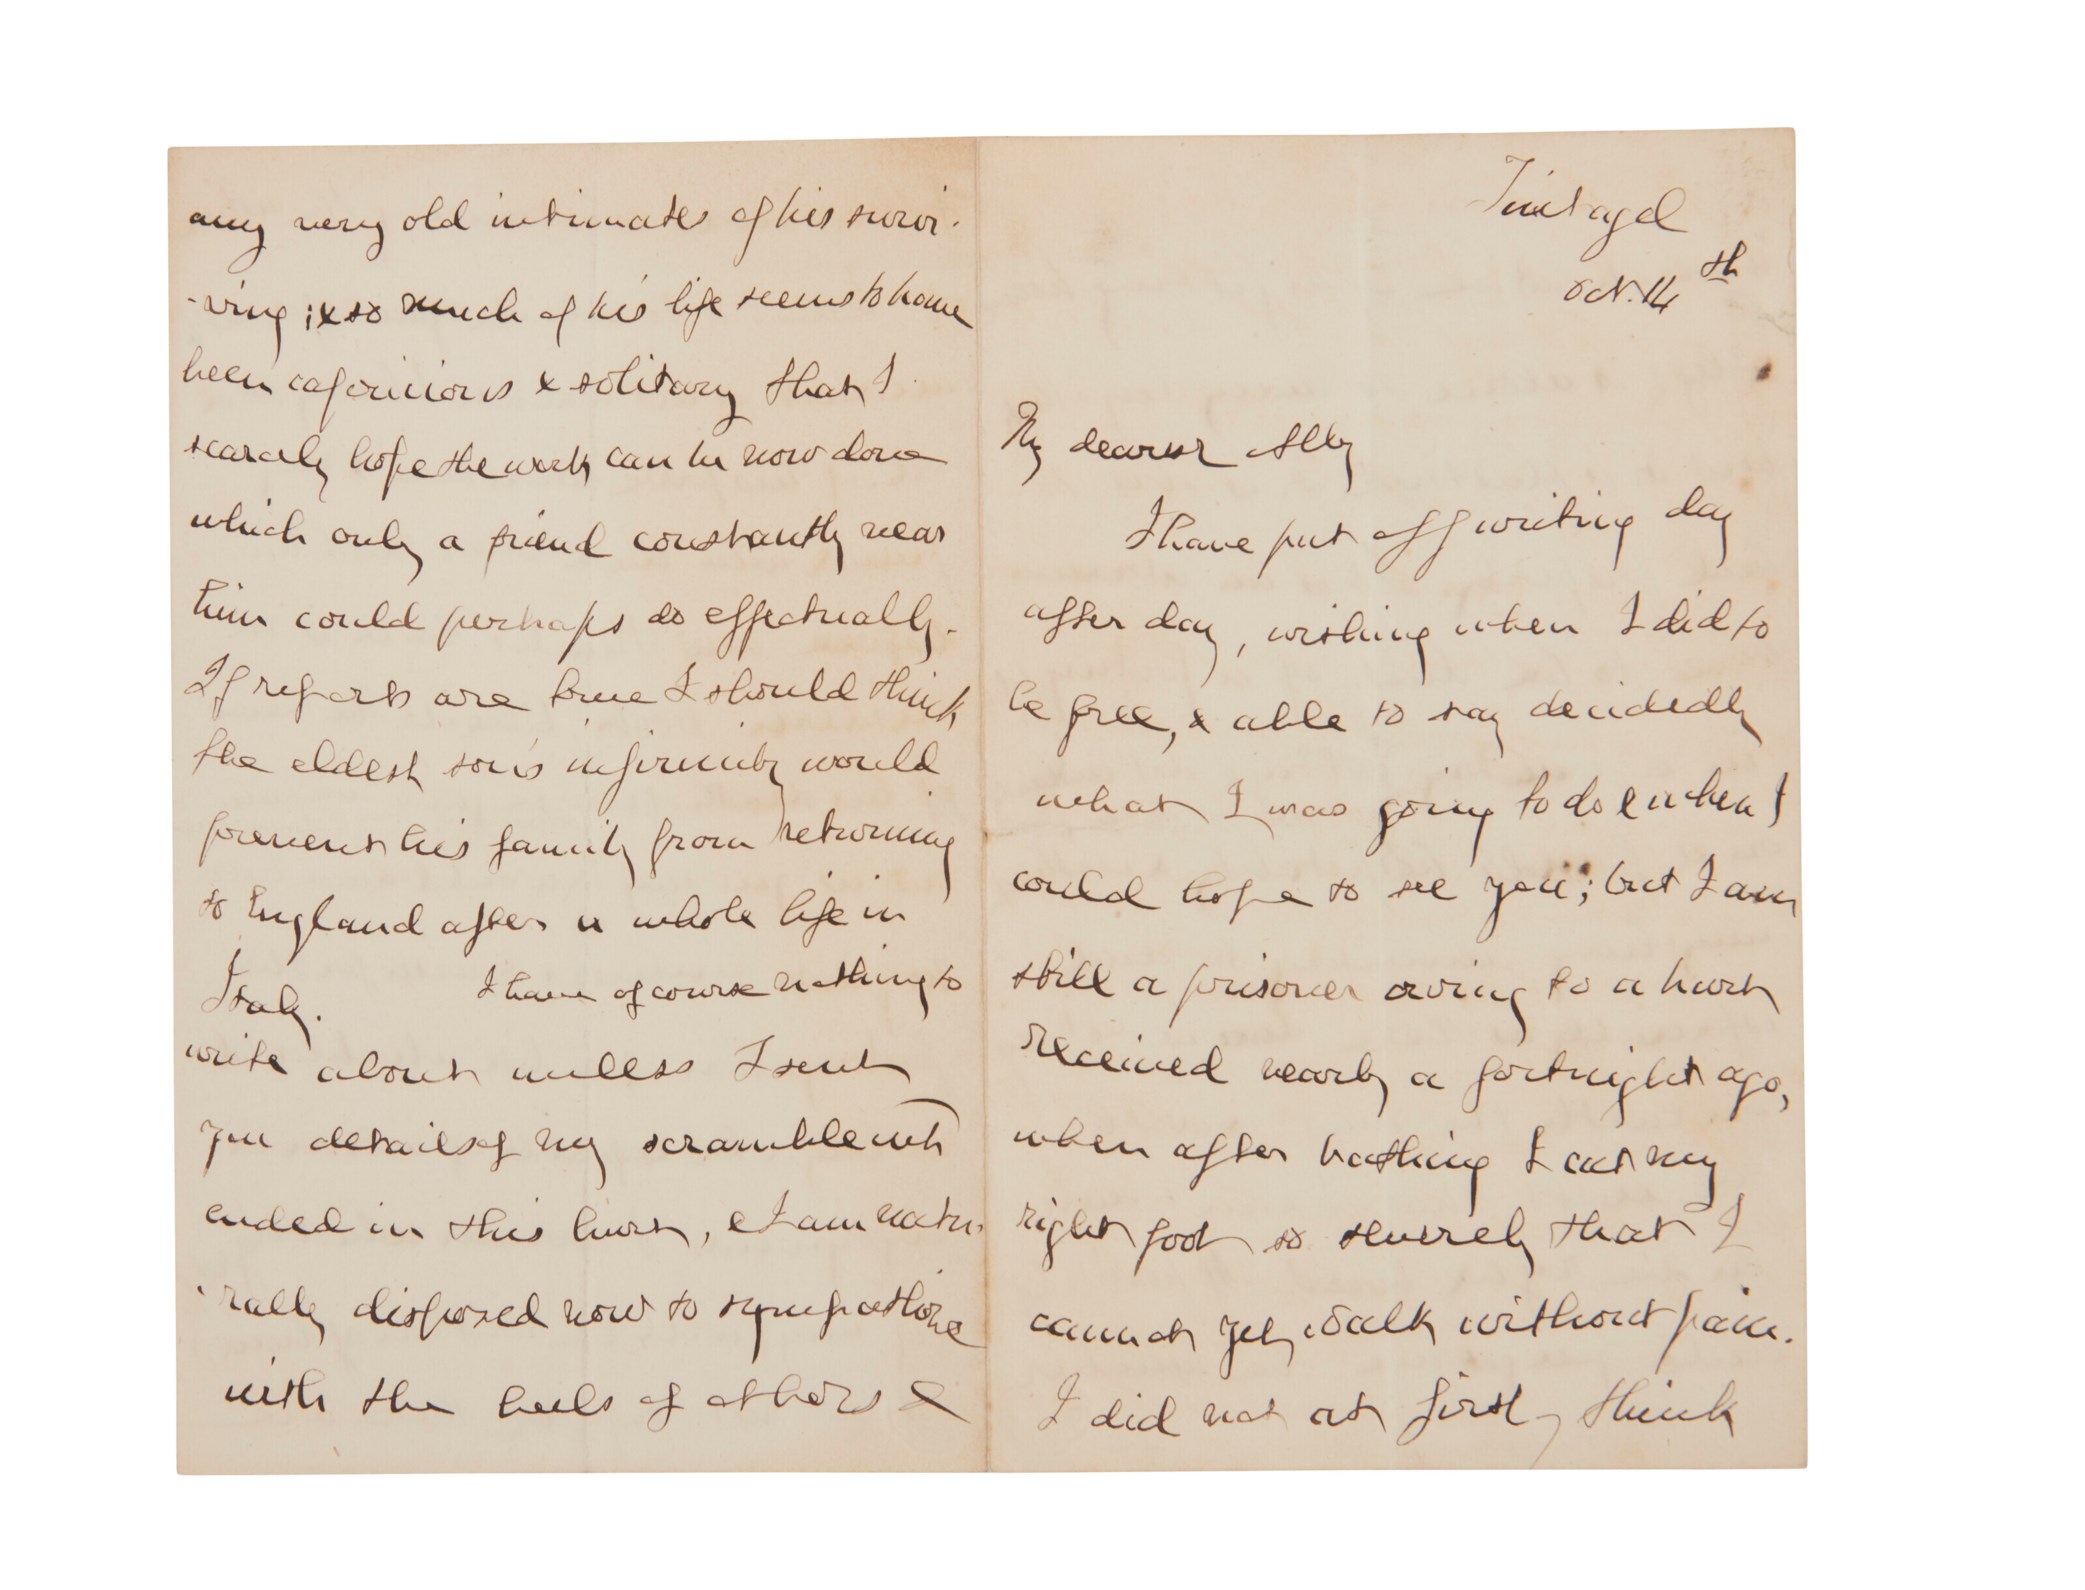 Tintagel
Oct. 14th
My dearest Ally
I have put off writing day
after day, wishing when I did to
be free, & able to say decidedly
what I was going to do & when I
could hope to see you; but I am
still a prisoner owing to a hurt
received nearly a fortnight ago,
when after bathing I cut my
right foot so severely that I
cannot yet walk without pain.
I did not at first think
any very old intimates of his survi-
-ving; & so much of his life seems to have
been capricious & solitary that I
scarcely hope the work can be now done
which only a friend constantly near
him could perhaps do effectually.
If reports are true I should think
the eldest son's infirmity would
prevent his family from returning
to England after a whole life in
Italy. I have of course nothing to
write about unless I sent
you details of my scramble wh
ended in this hurt, & I am natu-
-rally disposed now to sympathize
with the heels of others &